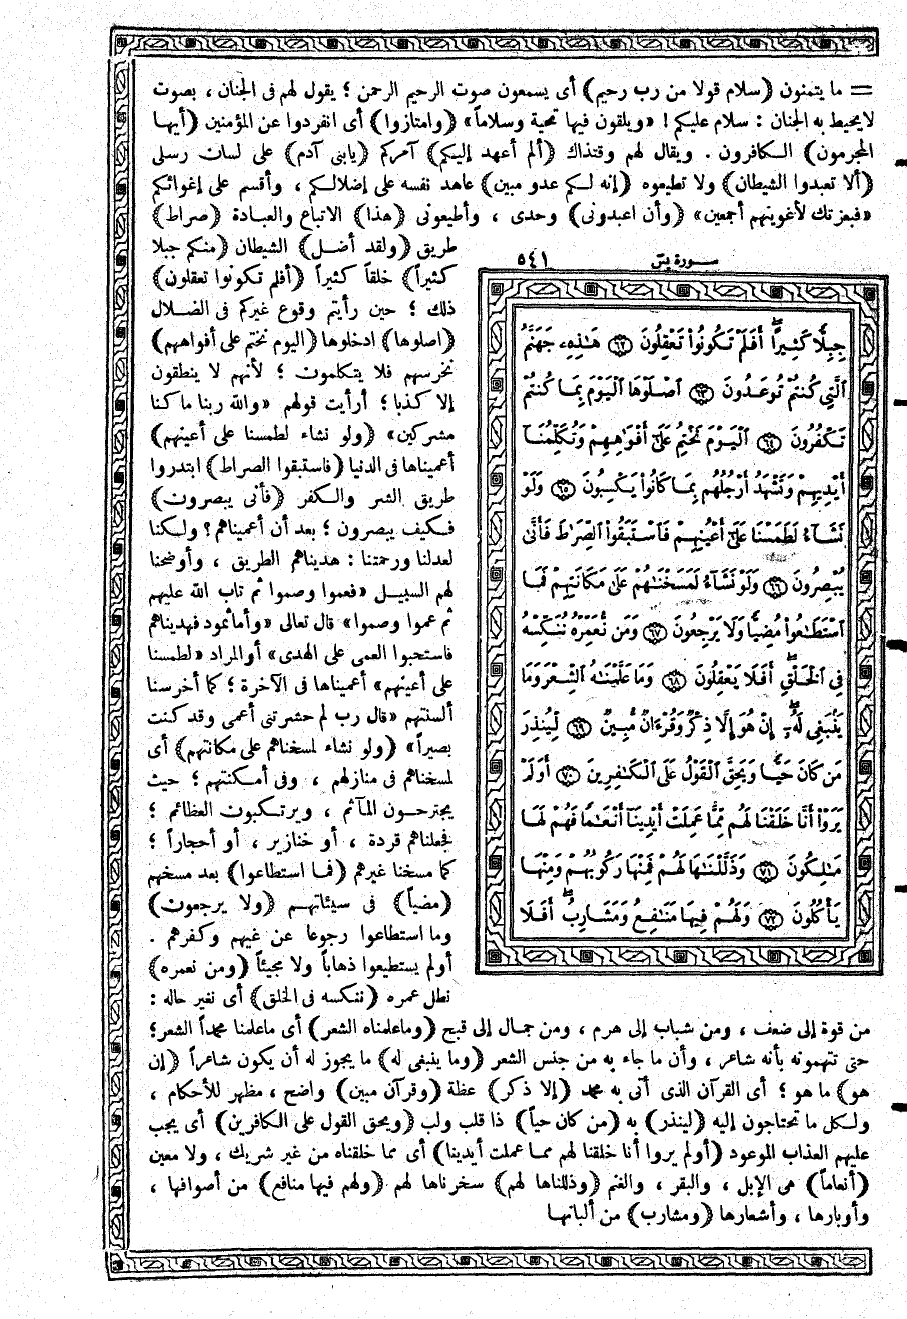 = ما يتمنون (سلام قولا من رب رحيم) أى يسمعون صوت الرحيم الرحمن ؛ يقول لهم فى الجنان ، بصوت
لا يحيط به الجنان : سلام عليكم ! «ويلقون فيها تحية وسلاماً» (وامتازوا) أى انفردوا عن المؤمنين (أيها
المجرمون) الكافرون . ويقال لهم وقتذاك (ألم أعهد إليكم) آمركم (يابنى آدم) على لسان رسلى
(ألا تعبدوا الشيطان) ولا تطيعوه (إنه لكم عدو مبين) عاهد نفسه على إضلالكم ، وأقسم على إغوائكم
«فبعزتك لأغوينهم أجمعين» (وأن اعبدونى) وحدى ، وأطيعونى (هذا) الاتباع والعبادة (صراط)
طريق (ولقد أضل) الشيطان (منكم جبلا
كثيراً) خلقاً كثيراً (أفلم تكونوا تعقلون)
ذلك ؛ حين رأيتم وقوع غيركم فى الضلال
(اصلوها) ادخلوها (اليوم نختم على أفواههم)
نخرسهم فلا يتكلمون ؛ لأنهم لا ينطقون
إلا كذبا ؛ أرأيت قولهم «والله ربنا ما كنا
مشركين» (ولو نشاء لطمسنا على أعينهم)
أعميناها فى الدنيا (فاستبقوا الصراط) ابتدروا
طريق الشر والكفر (فأنى يبصرون)
فكيف يبصرون ؛ بعد أن أعميناهم ؟ ولكنا
لعدلنا ورحمتنا : هديناهم الطريق ، وأوضحنا
لهم السبيل «فعموا وصموا ثم تاب الله عليهم
ثم عموا وصموا» قال تعالى «وأما ثمود فهديناهم
فاستحبوا العمى على الهدى» أو المراد «لطمسنا
على أعينهم» أعميناها فى الآخرة ؛ كما أخرسنا
ألسنتهم «قال رب لم حشرتنى أعمى وقد كنت
بصيراً» (ولو نشاء لمسخناهم على مكانتهم) أى
لمسخناهم فى منازلهم ، وفى أمكنتهم ؛ حيث
يجترحون المآثم ، ويرتكبون العظائم ؛
فجعلناهم قردة ، أو خنازير ، أو أحجاراً ؛
كما مسخنا غيرهم (فما استطاعوا) بعد مسخهم
(مضياً) فى سيئاتهم (ولا يرجعون)
وما استطاعوا رجوعا عن غيهم وكفرهم .
أولم يستطيعوا ذهاباً ولا مجيئاً (ومن نعمره)
نطل عمره (ننكسه فى الخلق) أى نغير حاله :
سورة يس ٥٤١
جِبِلًّا كَثِيرًا أَفَلَمْ تَكُونُوا۟ تَعْقِلُونَ ٦٢ هَٰذِهِۦ جَهَنَّمُ
ٱلَّتِى كُنتُمْ تُوعَدُونَ ٦٣ ٱصْلَوْهَا ٱلْيَوْمَ بِمَا كُنتُمْ
تَكْفُرُونَ ٦٤ ٱلْيَوْمَ نَخْتِمُ عَلَىٰٓ أَفْوَٰهِهِمْ وَتُكَلِّمُنَآ
أَيْدِيهِمْ وَتَشْهَدُ أَرْجُلُهُم بِمَا كَانُوا۟ يَكْسِبُونَ ٦٥ وَلَوْ
نَشَآءُ لَطَمَسْنَا عَلَىٰٓ أَعْيُنِهِمْ فَٱسْتَبَقُوا۟ ٱلصِّرَٰطَ فَأَنَّىٰ
يُبْصِرُونَ ٦٦ وَلَوْ نَشَآءُ لَمَسَخْنَٰهُمْ عَلَىٰ مَكَانَتِهِمْ فَمَا
ٱسْتَطَٰعُوا۟ مُضِيًّا وَلَا يَرْجِعُونَ ٦٧ وَمَن نُّعَمِّرْهُ نُنَكِّسْهُ
فِى ٱلْخَلْقِ أَفَلَا يَعْقِلُونَ ٦٨ وَمَا عَلَّمْنَٰهُ ٱلشِّعْرَ وَمَا
يَنۢبَغِى لَهُۥٓ إِنْ هُوَ إِلَّا ذِكْرٌ وَقُرْءَانٌ مُّبِينٌ ٦٩ لِّيُنذِرَ
مَن كَانَ حَيًّا وَيَحِقَّ ٱلْقَوْلُ عَلَى ٱلْكَٰفِرِينَ ٧٠ أَوَلَمْ
يَرَوْا۟ أَنَّا خَلَقْنَا لَهُم مِّمَّا عَمِلَتْ أَيْدِينَآ أَنْعَٰمًا فَهُمْ لَهَا
مَٰلِكُونَ ٧١ وَذَلَّلْنَٰهَا لَهُمْ فَمِنْهَا رَكُوبُهُمْ وَمِنْهَا
يَأْكُلُونَ ٧٢ وَلَهُمْ فِيهَا مَنَٰفِعُ وَمَشَارِبُ أَفَلَا
من قوة إلى ضعف ، ومن شباب إلى هرم ، ومن جمال إلى قبح (وما علمناه الشعر) أى ما علمنا محمداً الشعر ؛
حتى تتهموته بأنه شاعر ، وأن ما جاء به من جنس الشعر (وما ينبغى له) ما يجوز له أن يكون شاعراً (إن
هو) ما هو ؛ أى القرآن الذى أتى به محمد (إلا ذكر) عظة (وقرآن مبين) واضح ، مظهر للأحكام ،
ولكل ما تحتاجون إليه (لينذر) به (من كان حياً) ذا قلب ولب (ويحق القول على الكافرين) أى يجب
عليهم العذاب الموعود (أولم يروا أنا خلقنا لهم مما عملت أيدينا) أى مما خلقناه من غير شريك ، ولا معين
(أنعاماً) هى الإبل ، والبقر ، والغنم (وذللناها لهم) سخرناها لهم (ولهم فيها منافع) من أصوافها ،
وأوبارها ، وأشعارها (ومشارب) من ألبانها